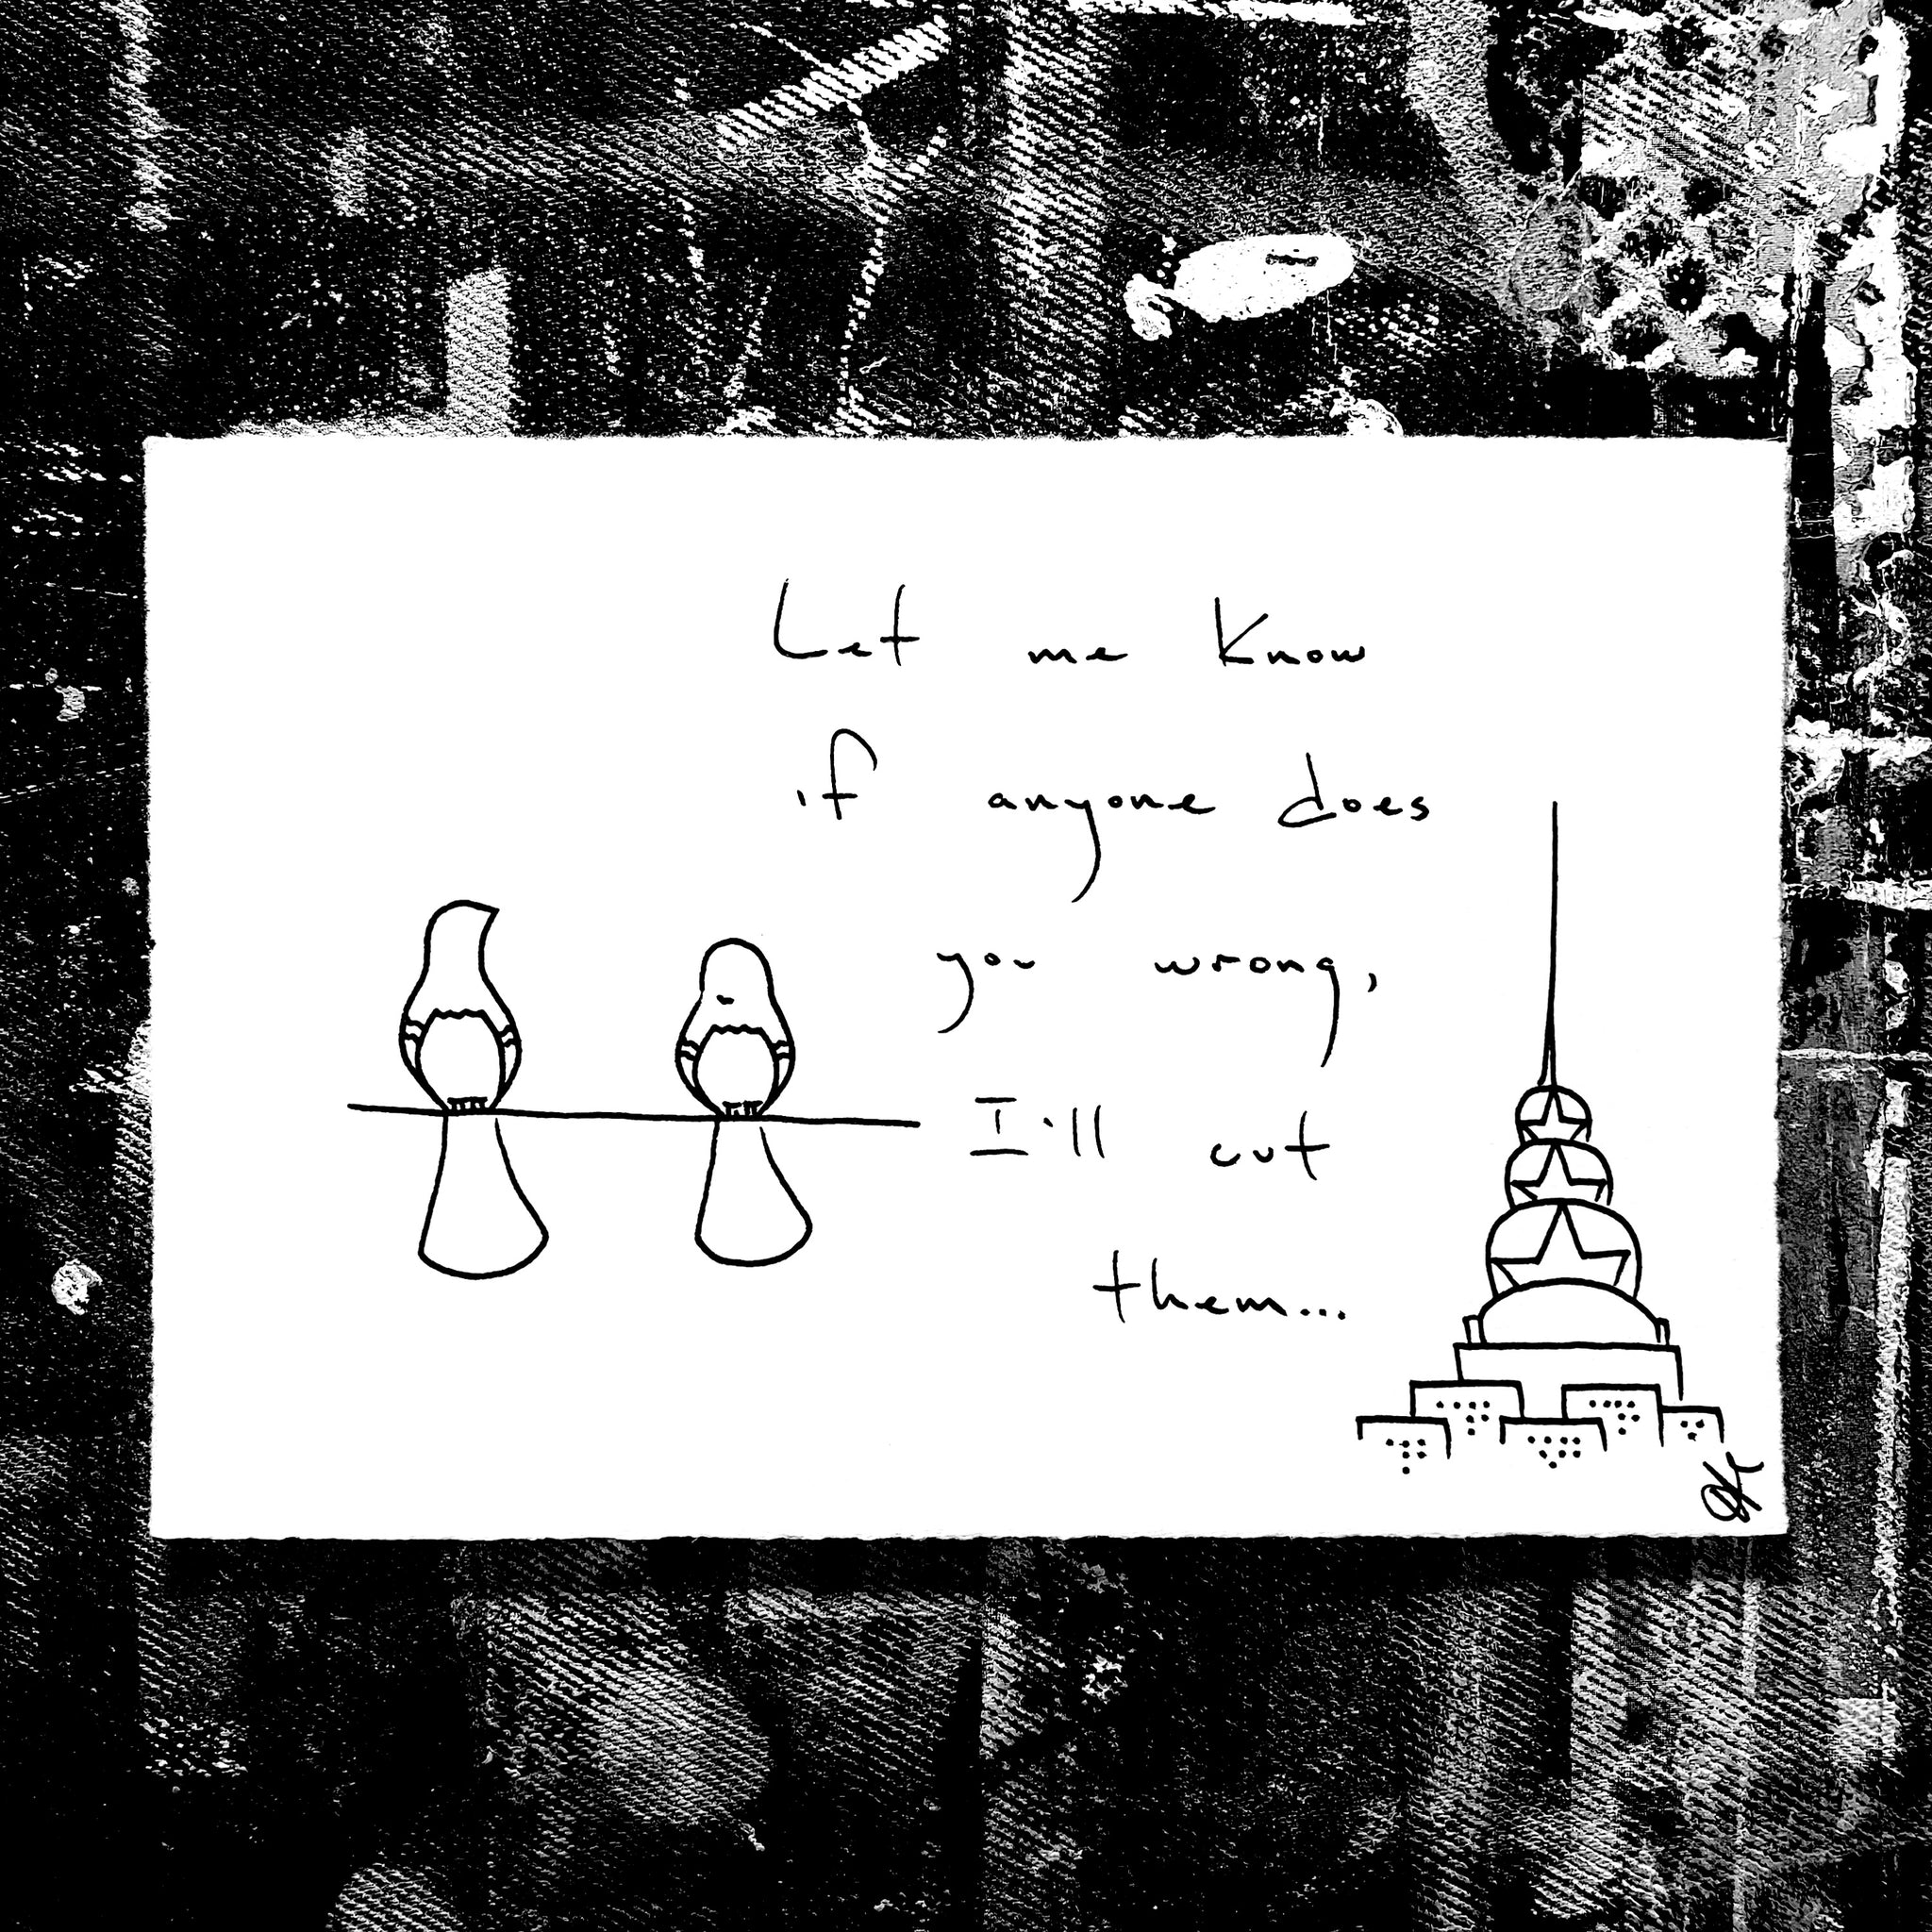 Let me know
if anyone does
you wrong,
I'll cut
them...